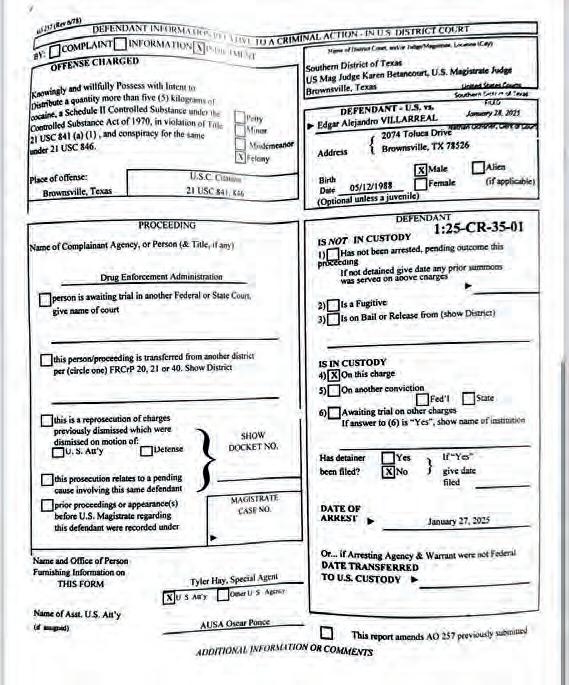 AO 257 (Rev 6/78)
DEFENDANT INFORMATION RELATIVE TO A CRIMINAL ACTION - IN U S DISTRICT COURT
BY: COMPLAINT INFORMATION X INDICTMENT
OFFENSE CHARGED
Knowingly and willfully Possess with Intent to
Distribute a quantity more than five (5) kilograms of
cocaine, a Schedule II Controlled Substance under the
Controlled Substance Act of 1970, in violation of Title
21 USC 841 (a) (1), and conspiracy for the same
under 21 USC 846.
Petty
Minor
Misdemeanor
X Felony
Place of offense:
Brownsville, Texas
U.S.C. Citation
21 USC 841, 846
Name of District Court, and/or Judge/Magistrate, Location (City)
Southern District of Texas
US Mag Judge Karen Betancourt, U.S. Magistrate Judge
Brownsville, Texas
United States Courts
Southern District of Texas
FILED
January 28, 2025
Nathan Ochsner, Clerk of Court
DEFENDANT - U.S. vs.
Edgar Alejandro VILLARREAL
Address
2074 Toluca Drive
Brownsville, TX 78526
Birth
Date 05/12/1988
X Male
Female
Alien
(if applicable)
(Optional unless a juvenile)
PROCEEDING
Name of Complainant Agency, or Person (& Title, if any)
Drug Enforcement Administration
person is awaiting trial in another Federal or State Court,
give name of court
this person/proceeding is transferred from another district
per (circle one) FRCrP 20, 21 or 40. Show District
this is a reprosecution of charges
previously dismissed which were
dismissed on motion of:
U. S. Att'y Defense
this prosecution relates to a pending
cause involving this same defendant
prior proceedings or appearance(s)
before U.S. Magistrate regarding
this defendant were recorded under
SHOW
DOCKET NO.
MAGISTRATE
CASE NO.
Name and Office of Person
Furnishing Information on
THIS FORM
Tyler Hay, Special Agent
X U S Att'y Other U S Agency
Name of Asst. U.S. Att'y
(if assigned)
AUSA Oscar Ponce
DEFENDANT
1:25-CR-35-01
IS NOT IN CUSTODY
1) Has not been arrested, pending outcome this
proceeding
If not detained give date any prior summons
was served on above charges
2) Is a Fugitive
3) Is on Bail or Release from (show District)
IS IN CUSTODY
4) X On this charge
5) On another conviction
Fed'l State
6) Awaiting trial on other charges
If answer to (6) is "Yes", show name of institution
Has detainer
been filed?
Yes
X No
If "Yes"
give date
filed
DATE OF
ARREST
January 27, 2025
Or... if Arresting Agency & Warrant were not Federal
DATE TRANSFERRED
TO U.S. CUSTODY
This report amends AO 257 previously submitted
ADDITIONAL INFORMATION OR COMMENTS